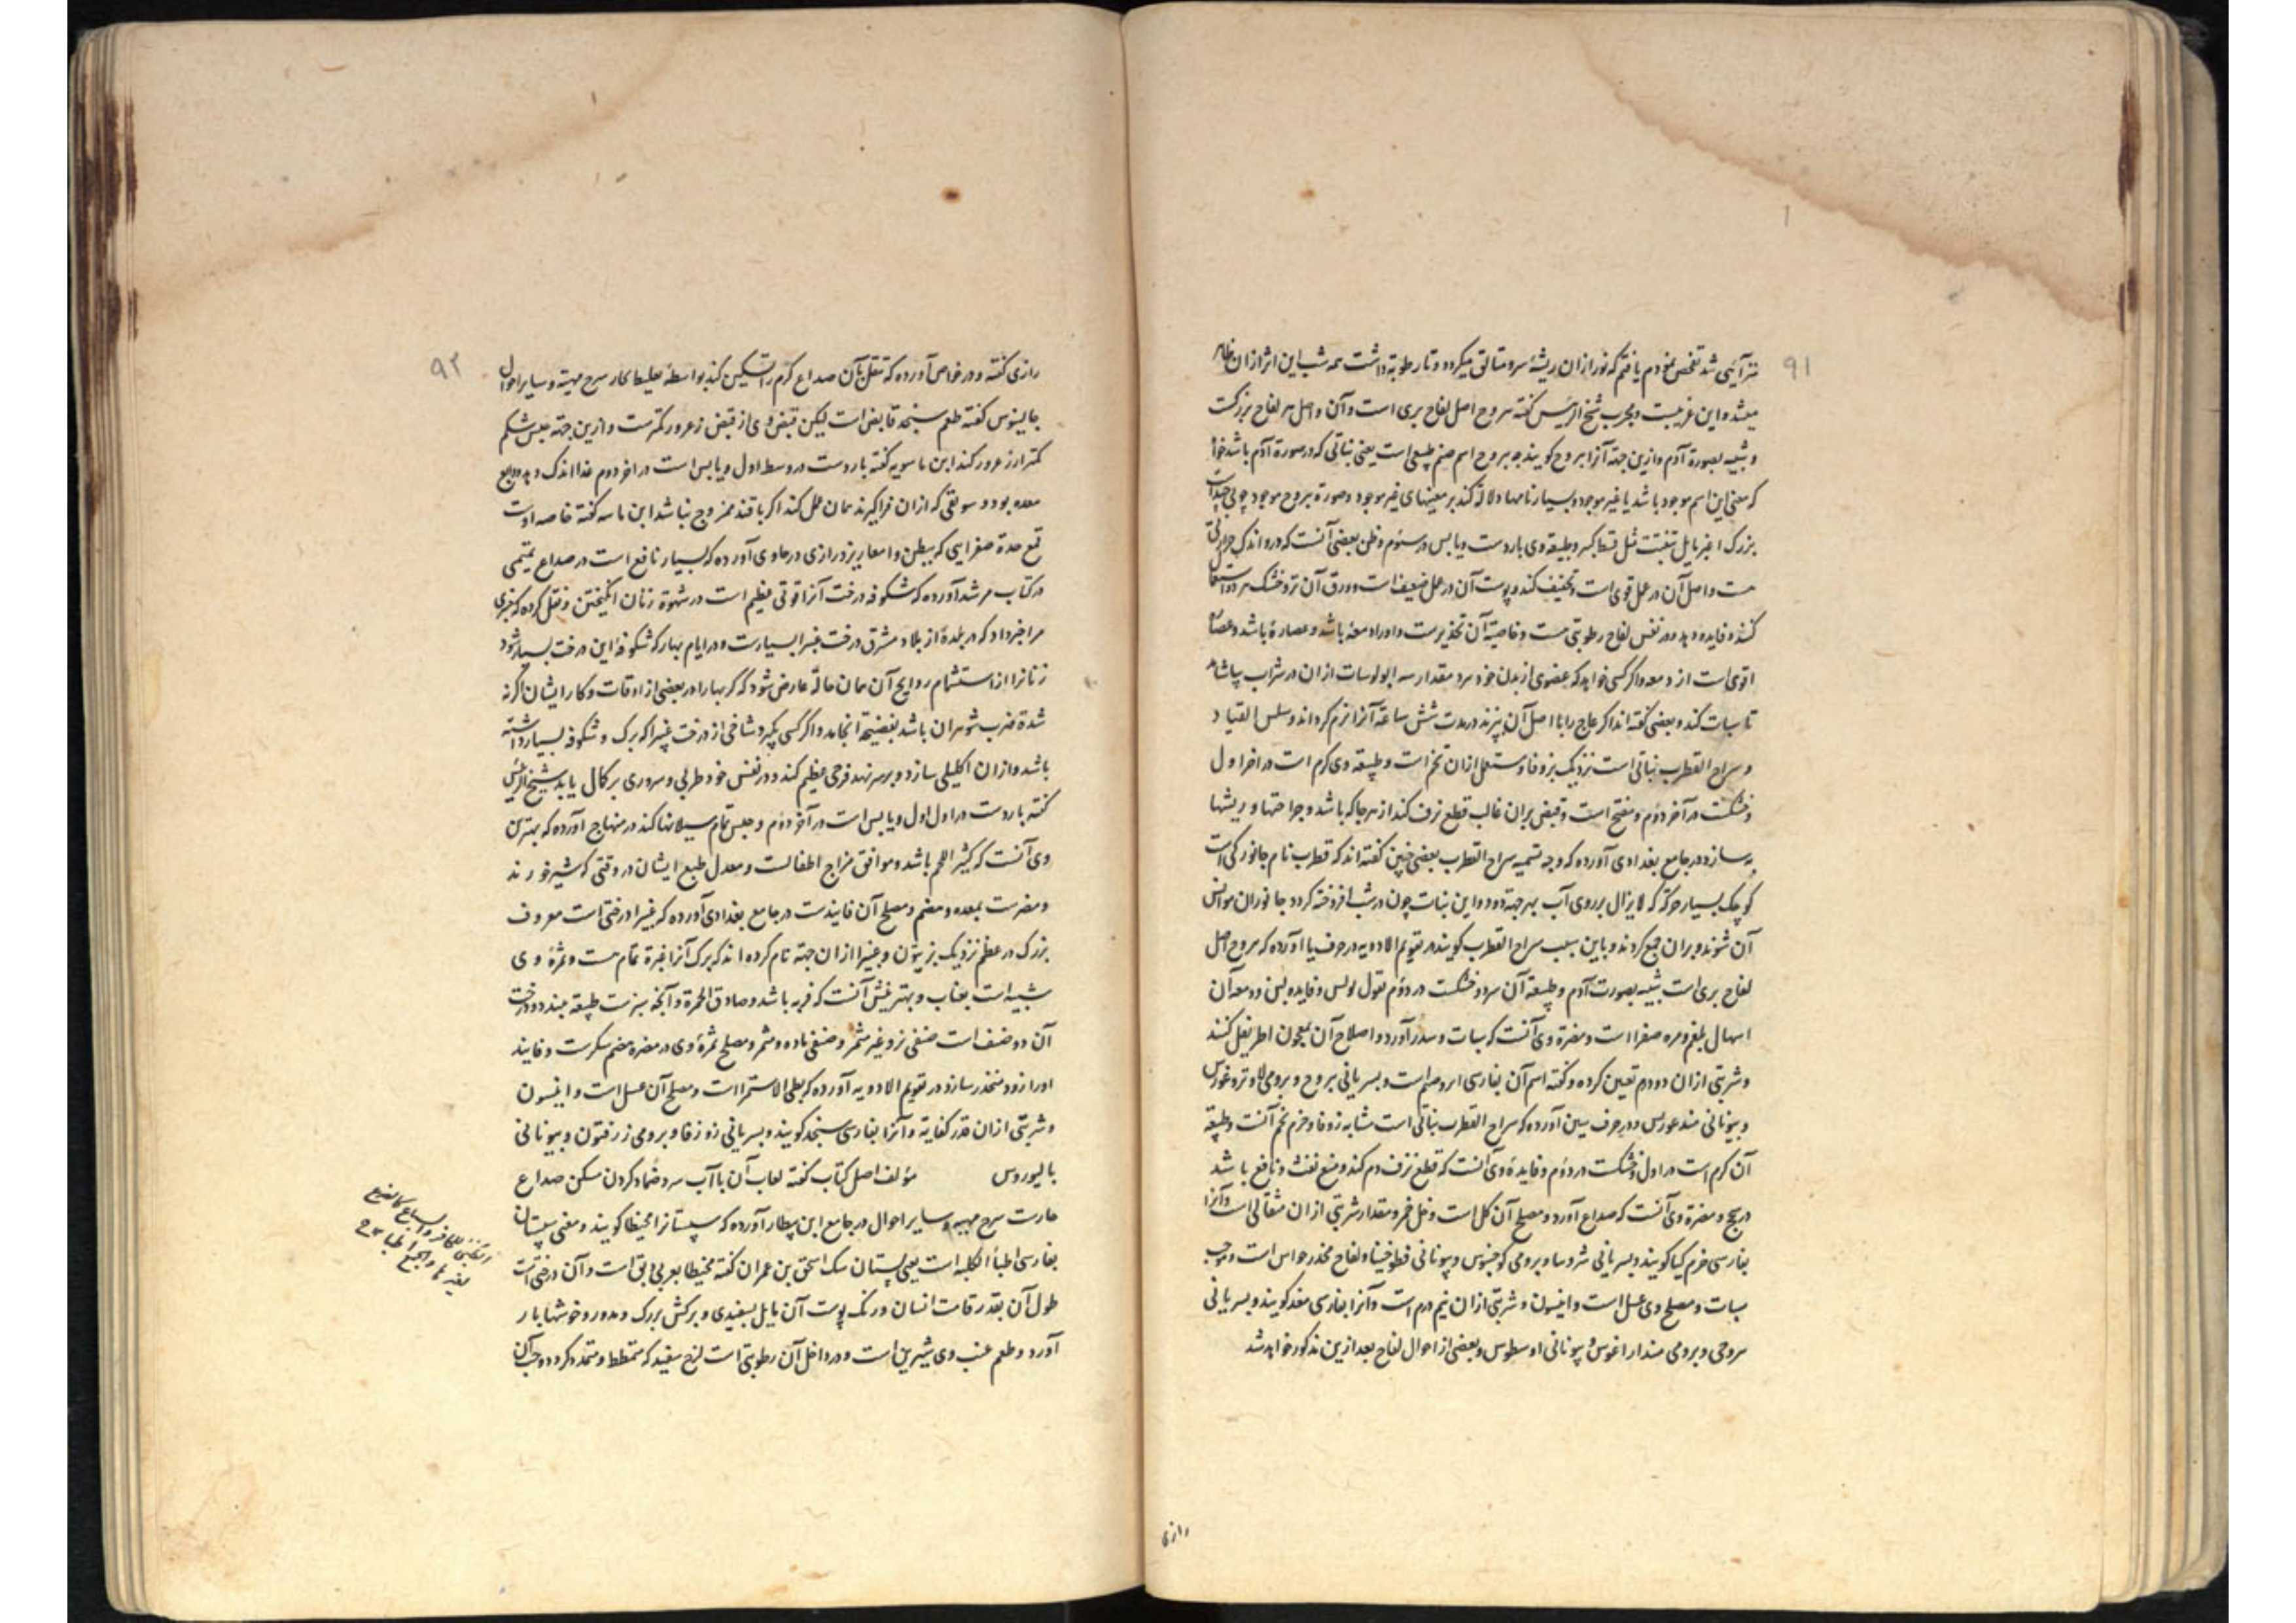 ۹۱
شد تفحص نمودم یافتم که نور ازان ریشهٔ سرو متالق میکردد و تا رطوبة داشت همه شب این اثر ازان ظاهر
میشد و این غریبست و مجرب شیخ الرئیس کفته یبروح اصل لفاح بری است و آن اصل هر لفاح بزرکست
و شبیه بصورة آدم و ازین جهة آنرا یبروح کویند چه یبروح اسم صنم طبیعی است یعنی نباتی که در صورة آدم باشد خواه
که معنی این اسم موجود باشد یا غیر موجود و بسیار نامها دلالة کند بر معنیهای غیر موجود و صورة یبروح موجود چوبی چند است
بزرک اغبر مایل مثل قسط کبیر و طبیعة وی باردست و یابس در سیوم و ظن بعضی آنست که درو اندک حرارتی
هست و اصل آن در عمل قوی است و تجفیف کند و پوست آن در عمل ضعیف است و ورق آن تر و خشک هر دو استعمال
کنند و فایده دهد و در نفس لفاح رطوبتی هست و خاصیة آن تخدیرست و او را دمعه باشد و عصاره باشد و عصاره
اقوی است از دمعه و اکر کسی خواهد که عضوی از بدن خود ببرد مقدار سه ابولوسات ازان در شراب بیاشامد
تا سبات کند و بعضی کفته اند اکر عاج را با اصل آن بپزند در مدت شش ساعة آنرا نرم کرداند و سلس القیاد
و سراج القطرب نباتی است نزدیک بزوفا و مستعمل ازان تخم است و طبیعة وی کرم است در آخر اول
و خشکست در آخر دوم و مفتح است و قبض بران غالب قطع نزف کند از هر جا که باشد و جراحتها و ریشها
به سازد در جامع بغدادی آورده که وجه تسمیه سراج القطرب بعضی چنین کفته اند که قطرب نام جانورکی است
کوچک بسیار حرکة که لایزال بر روی آب بهر جهة دود و این نبات چون در شب افروخته کردد جانوران موانس
آن شوند و بران جمع کردند و باین سبب سراج القطرب کویند در تقویم الادویه در حرف یا آورده که یبروح اصل
لفاح بری است شبیه بصورت آدم و طبیعة آن سرد و خشکست در دوم بقول بولس و فایده لبن و دمعه آن
اسهال بلغم و مره صفرا است و مضرة وی آنست که سبات و سدر آورد و اصلاح آن بمعجون اطریفل کنند
و شربتی ازان دو درم تعیین کرده و کفته اسم آن بفارسی است و بسریانی یبروح و برومی
و بیونانی مندغورس و در حرف سین آورده که سراج القطرب نباتی است مشابه زوفا و خرم تخم آنست و طبیعة
آن کرم است در اول و خشکست در دوم و فایدهٔ وی آنست که قطع نزف دم کند و منع نفث و نافع باشد
و مضرة وی آنست که صداع آورد و مصلح آن کل است و خل خمر و مقدار شربتی ازان مثقالی است و آنرا
بفارسی خرم کیا کویند و بسریانی و برومی و بیونانی و لفاح مخدر حواس است و موجب
سبات و مصلح وی عسل است و انیسون و شربتی ازان نیم درم است و آنرا بفارسی مغد کویند و بسریانی
و برومی و بیونانی و بعضی از احوال لفاح بعد ازین مذکور خواهد شد
رازی
۹۲
رازی کفته و در خواص آورده که تنقل بآن صداع کرم را تسکین کند بواسطهٔ تغلیظ بخار سرح مهیته و سایر احوال
جالینوس کفته طعم سنجد قابض است لیکن قبض وی از قبض زعرور کمترست و ازین جهة حبس شکم
کمتر از زعرور کند ابن ماسویه کفته باردست در وسط اول و یابس است در آخر دوم غذا اندک دهد و دابغ
معده بود و سویقی که ازان فراکیرند همان عمل کند اکر با قند ممزوج نباشد ابن ماسه کفته خاصه اوست
قمع حدة صفرایی که ببطن و امعا ریزد رازی در حاوی آورده که بسیار نافع است در صداع
در کتاب مرشد آورده که شکوفه درخت آنرا قوتی عظیم است در شهوة زنان انکیختن و نقل کرده که مخبری
مرا خبر داد که در بلدهٔ از بلاد مشرق درخت غبیرا بسیارست و در ایام بهار که شکوفهٔ این درخت بسیار شود
زنانرا از استشمام روایح آن همان حالة عارض شود که کربها را در بعضی از اوقات و کار ایشان اکر نه
شدة ضرب شوهران باشد بفضیحة انجامد و اکر کسی بکیرد شاخی از درخت غبیرا که برک و شکوفه بسیار داشته
باشد و ازان اکلیلی سازد و بر سر نهد فرحی عظیم کند و در نفس خود طربی و سروری بر کمال یابد شیخ الرئیس
کفته باردست در اول اول و یابس است در آخر دوم و حبس تمام سیلانها کند در منهاج آورده که بهترین
وی آنست که کثیر اللحم باشد و موافق مزاج اطفالست و معدل طبع ایشان در وقتی که شیر خورند
و مضرست بمعده و هضم و مصلح آن فانیذست در جامع بغدادی آورده که غبیرا درختی است معروف
بزرک در عظم نزدیک بزیتون و غبیرا ازان جهة نام کرده اند که برک آنرا غبرة تمام هست و ثمرهٔ وی
شبیه است بعناب و بهترینش آنست که فربه باشد و صادق الحمرة و آنچه سبزست طبیعة ببندد و درخت
آن دو صنف است صنفی نر و غیر مثمر و صنفی ماده و مثمر و مصلح ثمرهٔ وی در مضرة هضم سکرست و فانیذ
او را زود منحدر سازد و در تقویم الادویه آورده که بطی الاستمرا است و مصلح آن عسل است و انیسون
و شربتی ازان قدر کفایة و آنرا بفارسی سنجد کویند و بسریانی زوزفا و برومی زرفتون و بیونانی
بالیوروس مؤلف اصل کتاب کفته لعاب آن با آب سرد ضماد کردن مسکن صداع
حارست سرح مهیه و سایر احوال در جامع ابن بیطار آورده که سپستانرا مخیطا کویند و معنی سپستان
بفارسی اطباء الکلبه است یعنی پستان سک اسحق بن عمران کفته مخیطا بعربی دبق است و آن درختی است
طول آن بقدر قامت انسان و رنک پوست آن مایل بسفیدی و برکش بزرک و مدور و خوشها بار
آورد و طعم عنب وی شیرین است و در داخل آن رطوبتی است لزج سفید که متمطط و متمدد کردد و حب آن